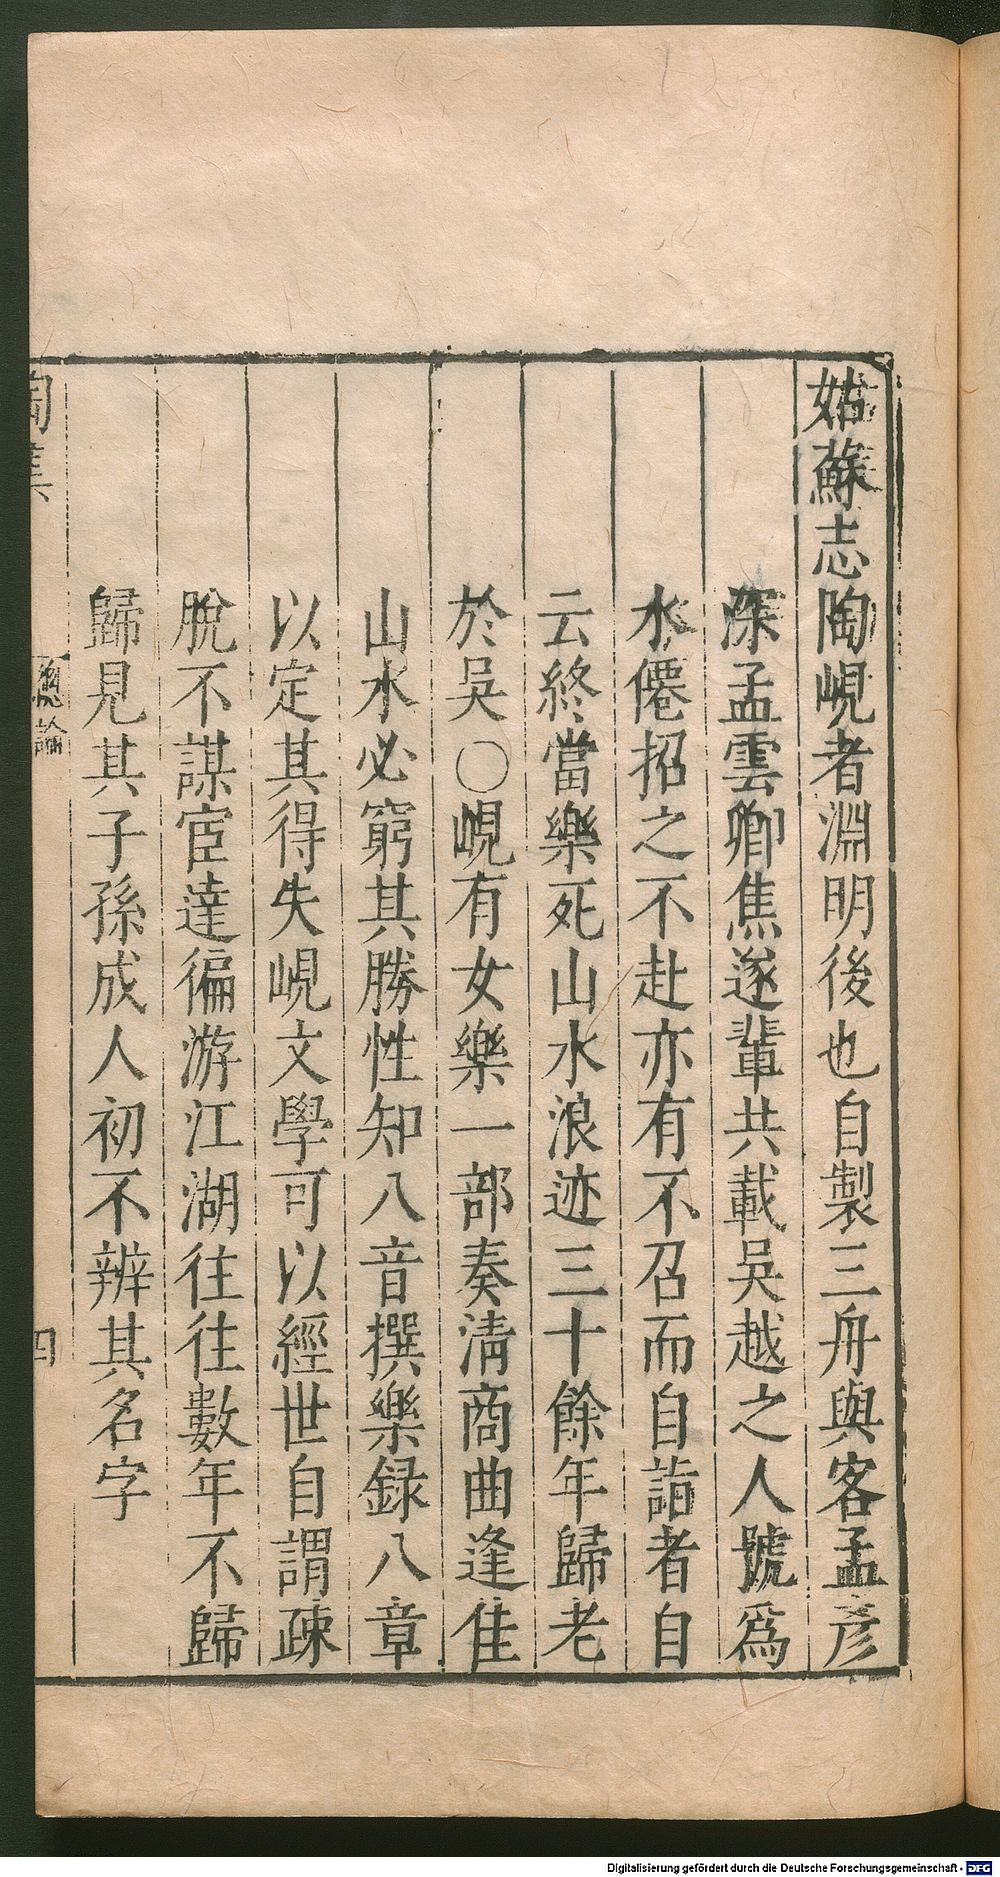 姑蘇志陶峴者淵明後也自製三舟與客孟彥
深孟雲卿焦遂輩共載吳越之人號爲
水僊招之不赴亦有不召而自詣者自
云終當樂死山水浪迹三十餘年歸老
於吳〇峴有女樂一部奏淸商曲逢佳
山水必窮其勝性知八音撰樂録八章
以定其得失峴文學可以經世自謂疎
脫不謀宦達徧游江湖往往數年不歸
歸見其子孫成人初不辨其名字
陶集
總論
四
Digitalisierung gefördert durch die Deutsche Forschungsgemeinschaft - DFG